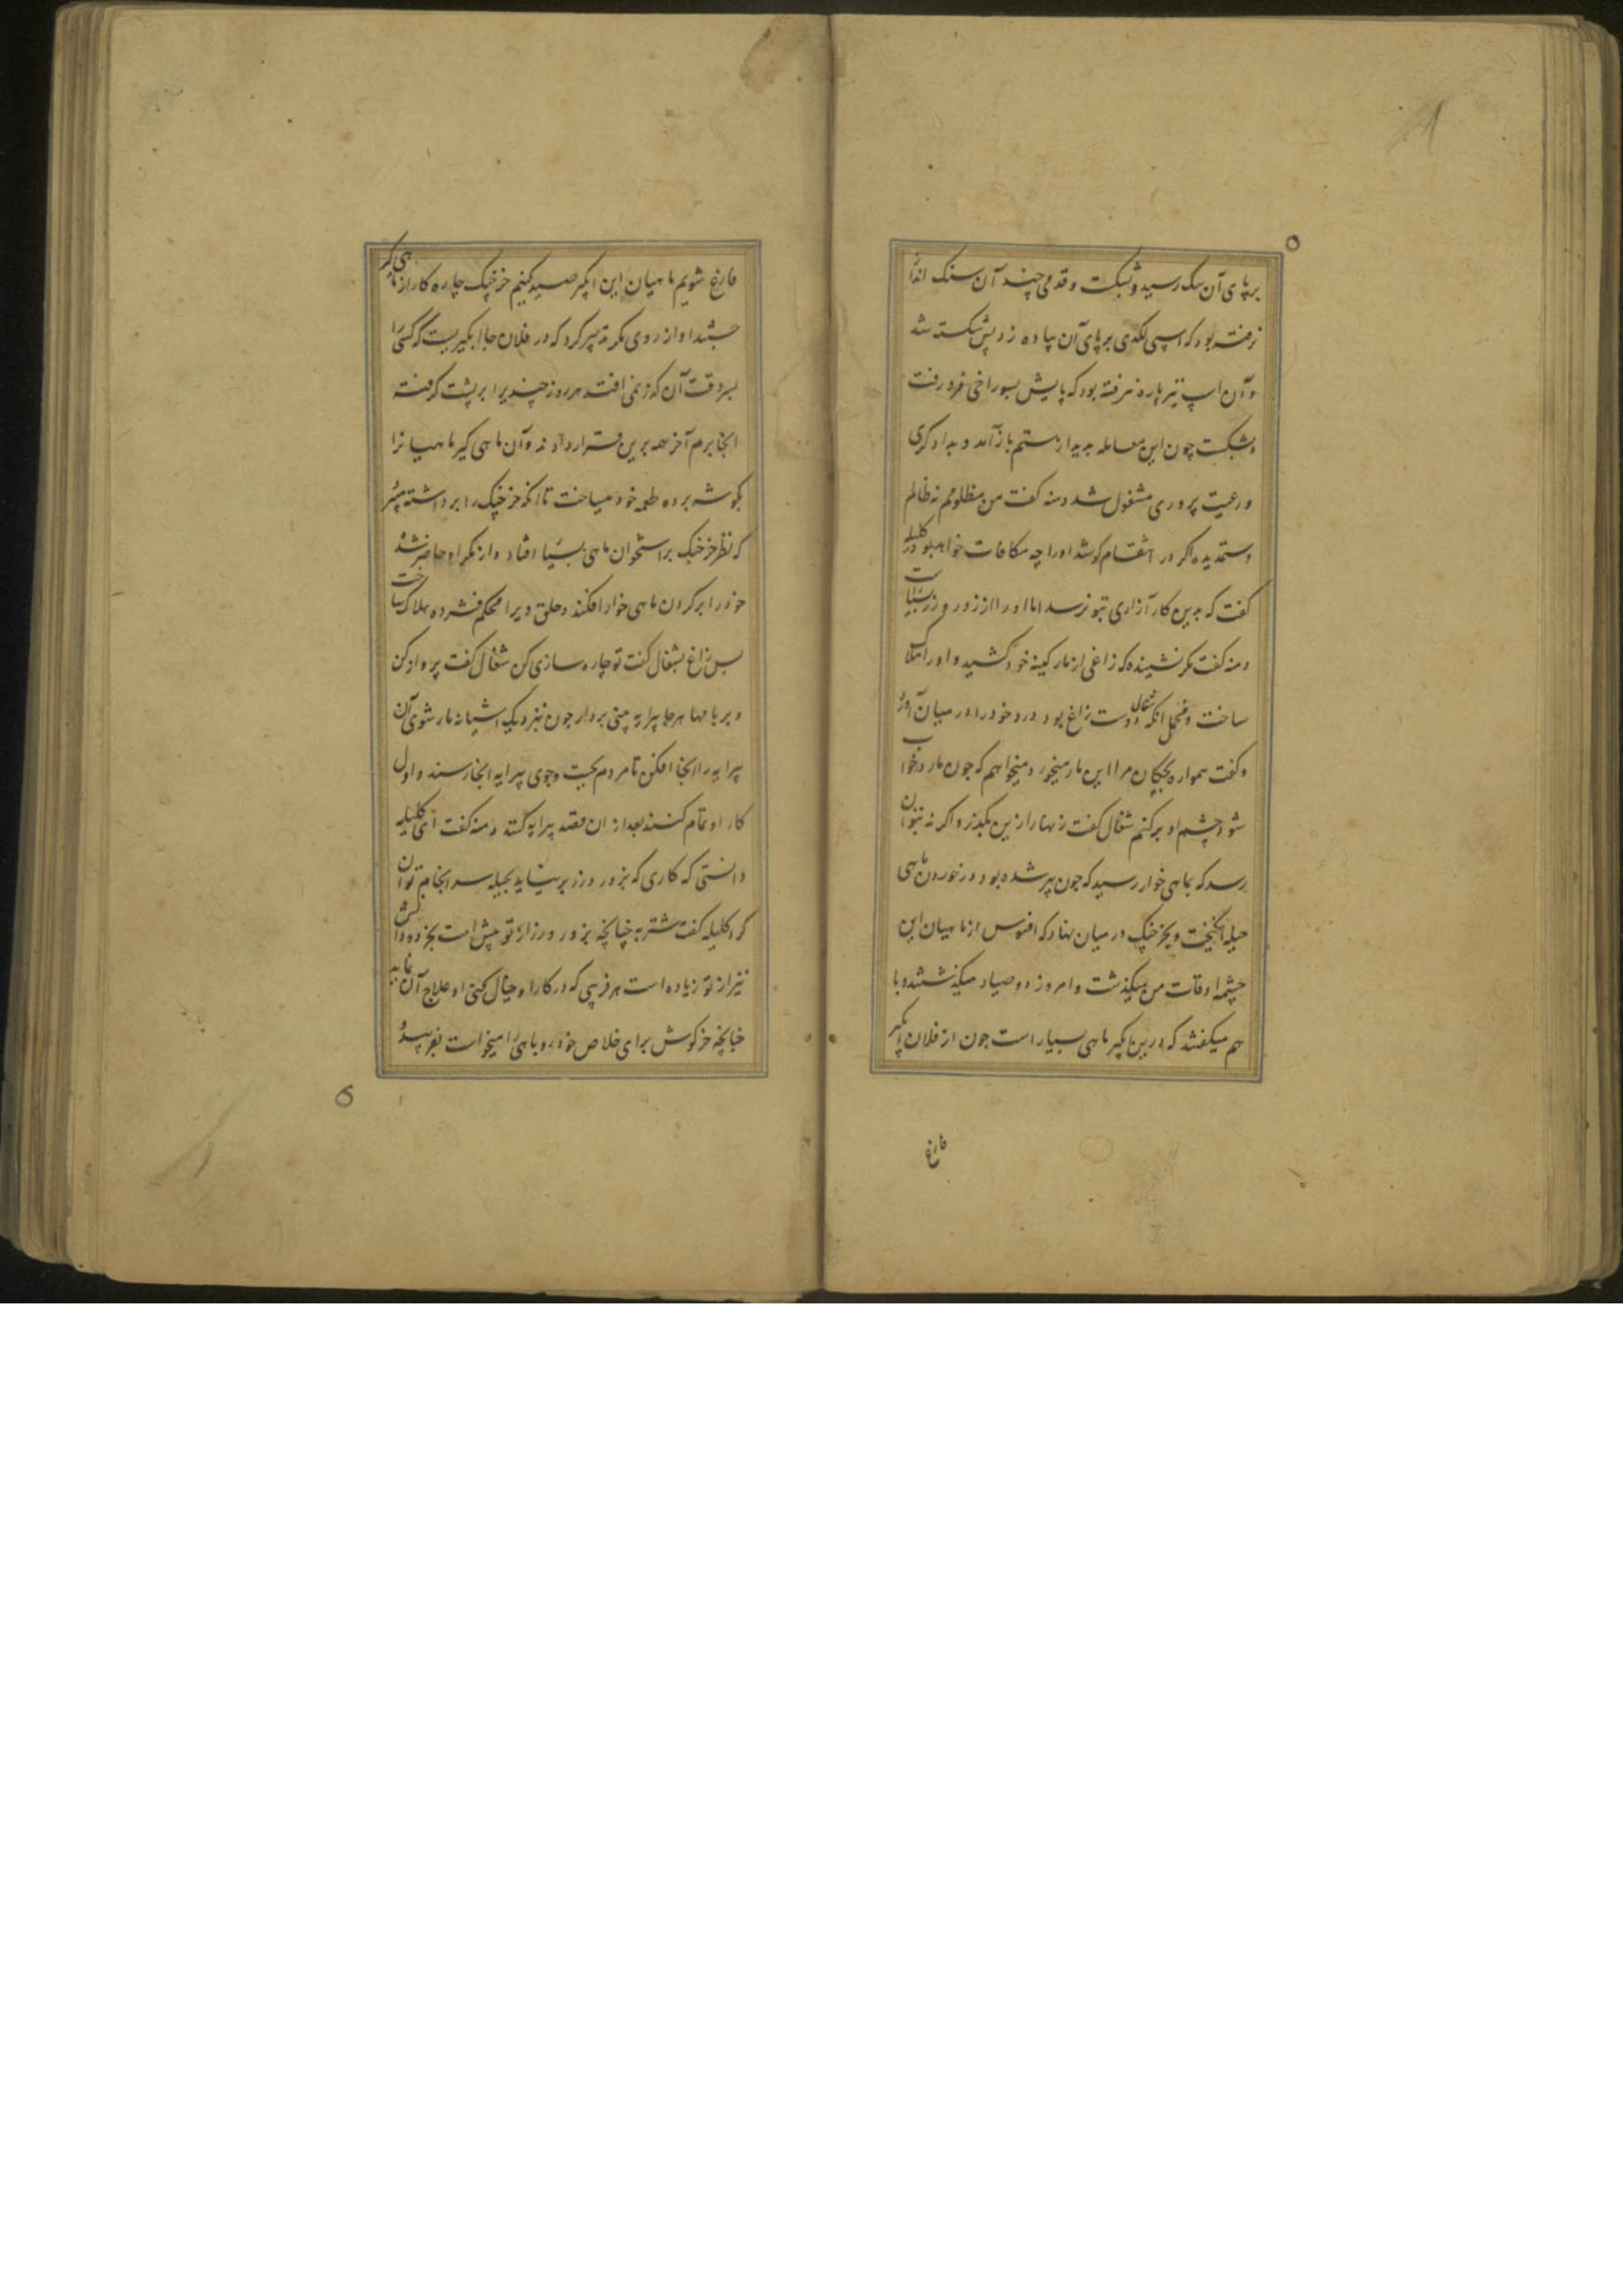 برپای آن سک رسید و شکست و قدمی چند آن سنک انداز
نرفته بود که اسپی لکدی برپای آن پیاده زد پش شکسته شد
و آن اسپ نیز پاره نرفته بود که پایش بسوراخی فرو رفت
و شکست چون این معامله بدید از ستم باز آمد و بداد کری
و رعیت پروری مشغول شد دمنه کفت من مظلومم نه ظالم
و ستمدیده اکر در انتقام کوشد او را چه مکافات خواهد بود کلیله
کفت که بدین کار آزاری بتو نرسد اما او را از زور و زر بسیار است
دمنه کفت مکر نشینده که زاغی از مار کینه خود کشید و او را هلاک
ساخت و مجمل آنکه شغالی دوست زاغ بود درد خود را در میان آورد
و کفت همواره بچکان مرا این مار میخورد میخواهم که چون مار در خواب
شود چشم او بر کنم شغال کفت زنهار ازین مکذر و اکر نه بتو آن
رسد که بماهی خوار رسید که چون پیر شده بود در خوردن ماهی
حیله انکیخت و بخرخپک در میان نهاد که افسوس از ماهیان این
چشمه اوقات من میکذشت و امروز دو صیاد میکذشتند و با
هم میکفتند که درین آبکیر ماهی بسیار است چون از فلان آبکیر
فارغ
فارغ شویم ماهیان این آبکیر صید کنیم خرخپک چاره کار از ماهی کیر
جستند او از روی مکر تدبیر کرد که در فلان جا آبکیریست که کسی را
بسر وقت آن کذر نمی افتد هر روز چندیرا بر پشت کرفته
انجا برم آخر همه برین قرار دادند و آن ماهی کیر ماهیانرا
بکوشه برده طعمه خود میساخت تا انکه خرخپک را برداشته میبرد
که نظر خرخپک بر استخوان ماهی بسیار افتاد و از مکر او حاضر شد
خود را بر کردن ماهی خوار افکند و حلق ویرا محکم فشرده هلاک ساخت
پس زاغ بشغال کفت تو چاره سازی کن شغال کفت پرواز کن
و بر بامها هر جا پیرایه بینی بردار چون نزدیک اشیانه مار شوی آن
پیرایه را انجا افکن تا مردم بجست و جوی پیرایه انجا رسند و اول
کار او تمام کنند بعد از ان قصد پیرایه کنند دمنه کفت ای کلیله
دانستی که کاری که بزور و زر بر نیاید بحیله سر انجام توان
کرد کلیله کفت شتربه چنانچه بزور و زر از تو پیش است بخرد و دانش
نیز از تو زیاده است هر فریبی که در کار او خیال کنی او علاج آن نماید
چنانچه خرکوش برای خلاص خود روباهی را میخواست بفریبد